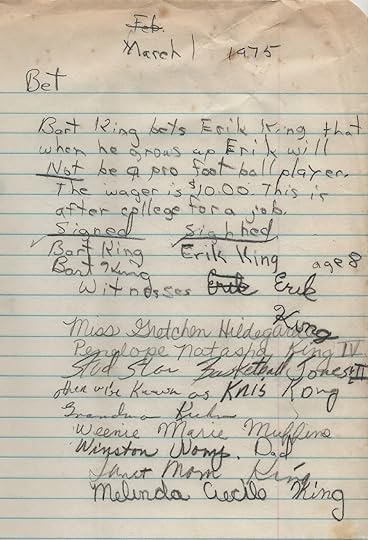 Feb.
March 1 1975
Bet
Bart King bets Erik King that
when he grows up Erik will
Not be a pro foot ball player.
The wager is $10.00. This is
after college for a job.
Signed Signed
Bart King Erik King age 8
Bart King
Witnesses Erik Erik
King
Miss Gretchen Hildegard
Penelope Natasha King IV
Star Basketball Jones II
other wise known as Kris Kong
Grandma
Weenie Marie Muffins
Winston Wong. Dad
Janet Mom King
Melinda Cecile King